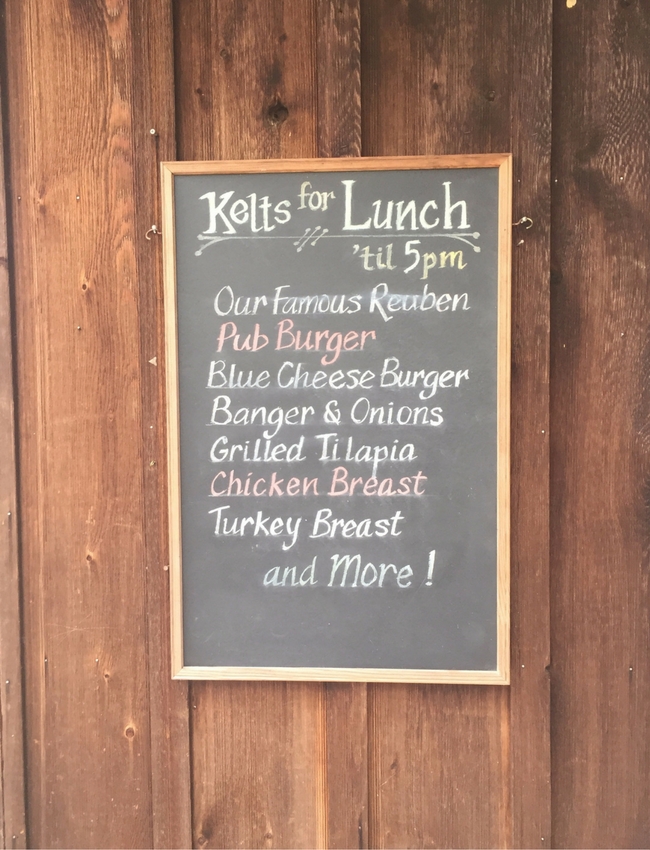 Kelts for Lunch
'til 5pm
Our Famous Reuben
Pub Burger
Blue Cheese Burger
Banger & Onions
Grilled Tilapia
Chicken Breast
Turkey Breast
and More !